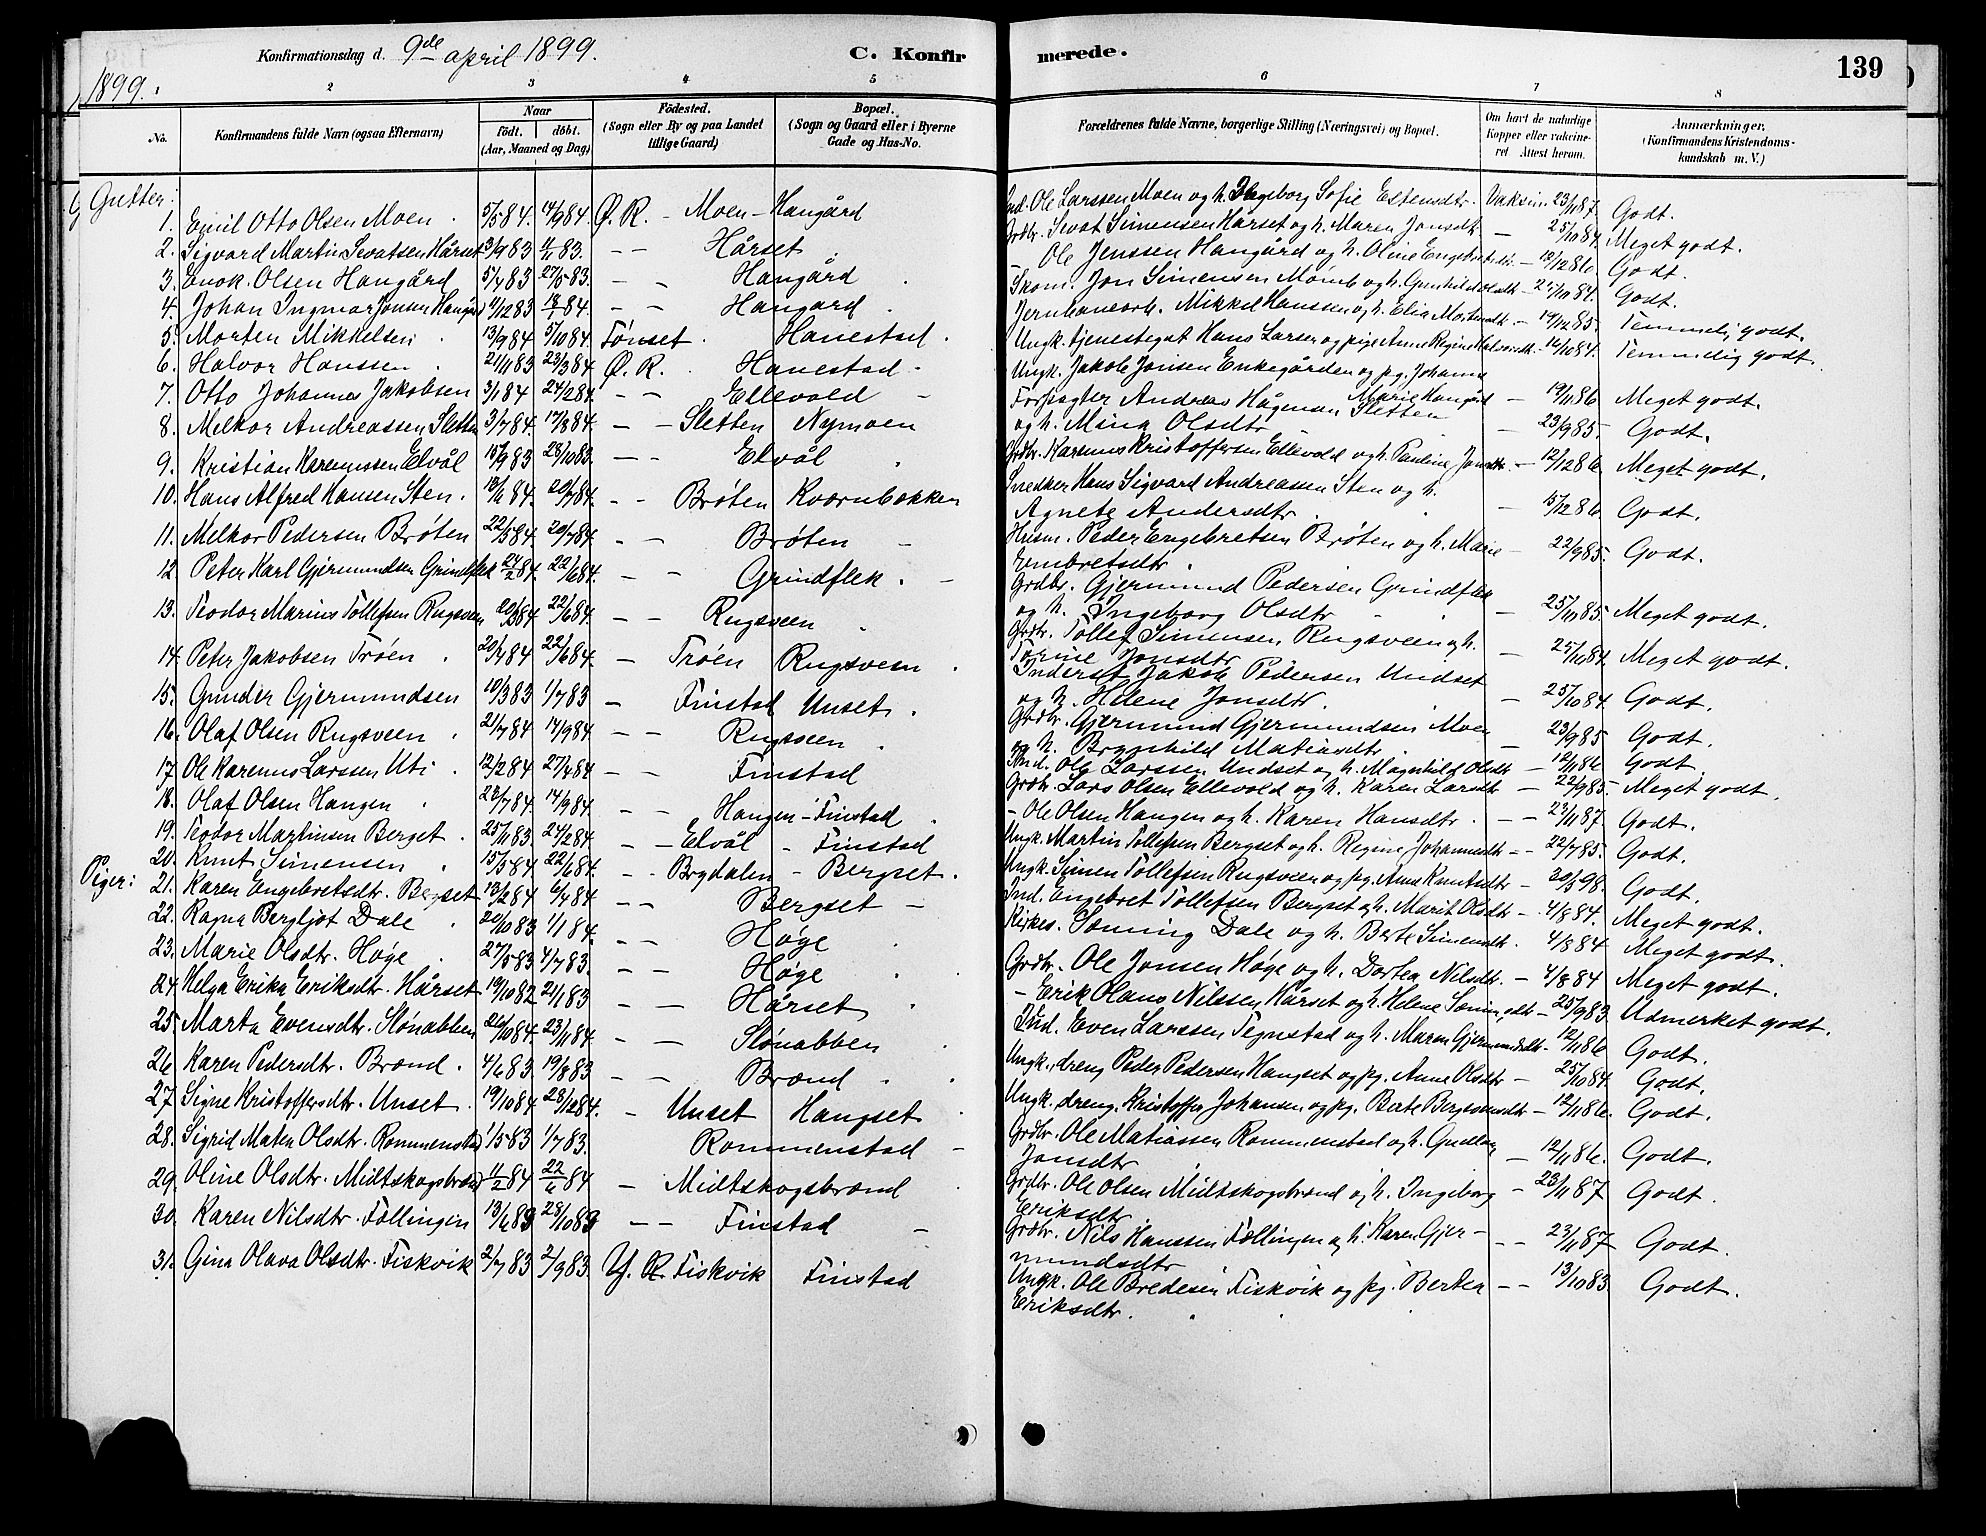 Konfirmationsdag d. 9de april 1899.
C. Konfirmerede.
139
1899.
2 3 4 5 6 7 8
No.
Konfirmandens fulde Navn (ogsaa Efternavn)
Naar
født. døbt.
(Aar, Maaned og Dag)
Fødested.
(Sogn eller By og paa Landet tillige Gaard)
Bopæl.
(Sogn og Gaard eller i Byerne Gade og Hus-No.
Forældrenes fulde Navne, borgerlige Stilling (Næringsvei) og Bopæl.
Om havt de naturlige Kopper eller vakcineret Attest herom.
Anmærkninger.
(Konfirmandens Kristendomskundskab m. V.)
Gutter:
1. Emil Otto Olsen Moen 5/5 84. 14/9 84. Ø. R. - Moen - Hangård Ind. Ole Larssen Moen og h. Ingeborg Sofie Estensdtr. Vaksin. 23/11 87. Godt.
2. Sigvard Martin Sevatsen Hårset 3/9 83 4/11 83. - - Hårset Grdbr. Sevat Simensen Hårset og h. Maren Jonsdtr. - 25/10 84. Meget godt.
3. Enok Olsen Hangård 5/4 83 27/5 83. - - Hangård - Ole Jenssen Hangård og h. Oline Engebretsdtr. - 12/12 86. Godt.
4. Johan Ingmar Jonsen Hangård 9/12 83 18/1 84. - - Hangård Skom. Jon Simensen Momb og h. Gunhild Olsdtr - 25/10 84. Godt.
5. Morten Mikkelsen 13/9 84 5/10 84. Tønset Hanestad Jernbanearb. Mikkel Hanssen og h. Elia Mortensdtr - 19/12 85. Temmelig godt.
6. Halvor Hanssen 21/11 83 23/3 84 Ø. R. Hanestad Ungk. tjenestegut Hans Larsen og pige Anne Regine Halvorsdtr. - 12/10 84. Temmelig godt.
7. Otto Johannes Jakobsen 3/1 84 24/2 84. - - Ellevold Ungk. Jakob Jonsen Enkegården og pg. Johanna Marie Hangård - 19/11 86 Meget godt.
8. Melkor Andreassen Sletten 3/7 84. 17/8 84. - - Sletten Nymoen Forpagter Andreas Hågensen Sletten
og h. Mina Olsdtr - 23/9 85. Godt.
9. Kristian Karenussen Elvål 15/9 83 28/10 83. - - Elvål Grdbr. Karenus Kristoffersen Ellevold og h. Pauline Jonsdtr. - 12/12 86 Meget godt.
10. Hans Alfred Hansen Sten. 18/6 84. 20/7 84. - - Brøten Kvørnbækken Snedker Hans Sigvard Andreassen Sten og h.
Agnete Andersdtr. - 15/12 86. Godt.
11. Melkor Pedersen Brøten 22/5 84. 20/7 84. - - Brøten - Husm. Peder Engebretsen Brøten og h. Marie
Embretsdtr. - 22/9 85. Godt.
12 Peter Karl Gjermundsen Grindflek 24/2 84. 22/6 84. - - Grindflek. - Grdbr. Gjermund Pedersen Grindflek
og h. Ingeborg Olsdtr - 25/11 85. Meget godt.
13. Teodor Marius Tollefsen Rugsveen 20/3 84 22/6 84. - - Rugsveen Grdbr. Tollef Simensen Rugsveen og h.
Torine Jonsdtr - 25/10 84. Meget godt.
14. Peter Jakobsen Trøen 20/4 84 22/6 84. - Trøen Rugsveen Inderst Jakob Pedersen Undset
og h. Helene Jonsdtr. - 25/10 84. Godt.
15. Gunder Gjermundsen 10/3 83 1/7 83 - Finstad Unset. Grdbr. Gjermund Gjermundsen Moen
og h. Brynhild Matiasdtr. - 23/9 85 Godt.
16. Olaf Olsen Rugsveen 21/7 84 14/9 84 - - Rugsveen Ind. Ole Larssen Undset og h. Magnhild Olsdtr - 12/11 86 Godt
17 Ole Karenus Larssen Uti 12/2 84 27/4 84 - - Finstad Grdbr. Lars Olsen Ellevold og h. Karen Larsdtr - 22/9 85. Meget godt.
18. Olaf Olsen Hangen 23/7 84 14/9 84. - - Hangen - Finstad - Ole Olsen Hangen og h. Karen Hansdtr. - 23/11 87. Godt.
19. Teodor Martinsen Berget 25/11 83. 24/2 84. - - Elvål - Finstad Ungk. Martin Tollefsen Bergset og h. Regine Johannesdtr - 22/7 85. Godt.
20. Knut Simensen 15/5 84 22/6 84. - - Brydalen - Bergset. Ungk. Simen Tollefsen Rugsveen og pg. Anne Knutsdtr - 20/3 98. Godt.
Piger:
21. Karen Engebretsdtr. Bergset 13/2 84 6/4 84 - - Bergset - Ind. Engebret Tollefsen Bergset og h. Marit Olsdtr - 4/8 84. Meget godt.
22. Ragna Bergljot Dale 20/10 83 1/1 84. - - Høge Kirkes. Sæming Dale og h. Berte Simensdtr. 4/8 84 Meget godt.
23. Marie Olsdtr. Høge 27/5 83 4/7 83. - - Høge Grdbr. Ole Jonsen Høge og h. Dortea Nilsdtr. - 4/8 84 Meget godt.
24 Helga Erika Eriksdtr. Hårset 19/10 82 21/1 83 - - Hårset - Erik Olaus Nilssen Hårset og h. Helene Sæmingsdtr - 25/9 83. Udmerket godt.
25. Marta Evensdtr. Slønabben 26/10 84. 23/11 84. - - Slønabben Ind. Even Larssen Tegnstad og h. Maren Gjermundsdtr. 12/11 86 Godt.
26 Karen Pedersdtr. Brænd. 4/6 83. 19/8 83 - - Brænd. Ungk. dreng Peder Pedersen Hangset og pg. Anne Olsdtr - 25/10 84. Godt.
27 Signe Kristoffersdtr. Unset 19/10 84. 28/12 84. - Unset Hangset Ungk. dreng Kristoffer Johansen og pg. Berte Bergsvensdtr - 12/11 86. Godt.
28. Sigrid Matea Olsdtr. Rommenstad 1/5 83 1/7 83. Rommenstad - Grdbr. Ole Matiassen Rommenstad og h. Gudlaug
Jonsdtr - 12/11 86. Godt.
29. Oline Olsdtr. Midtskogsbrænd 11/2 84 22/6 84 - Midtskogsbrænd Grdbr. Ole Olsen Midtskogsbrænd og h. Ingeborg
Eriksdtr. - 23/11 87 Godt.
30. Karen Nilsdtr. Føllingen 13/6 83 28/10 83 - - Finstad - Grdbr. Nils Hanssen Føllingen og h. Karen Gjer-
mundsdtr - - 23/11 87 Godt.
31. Gina Olava Olsdtr. Fiskvik 2/7 83 2/9 83. Y. R. Fiskvik Finstad Ungk. Ole Bredesen Fiskvik og pg. Bertea
Eriksdtr. - - 13/10 83. Godt.